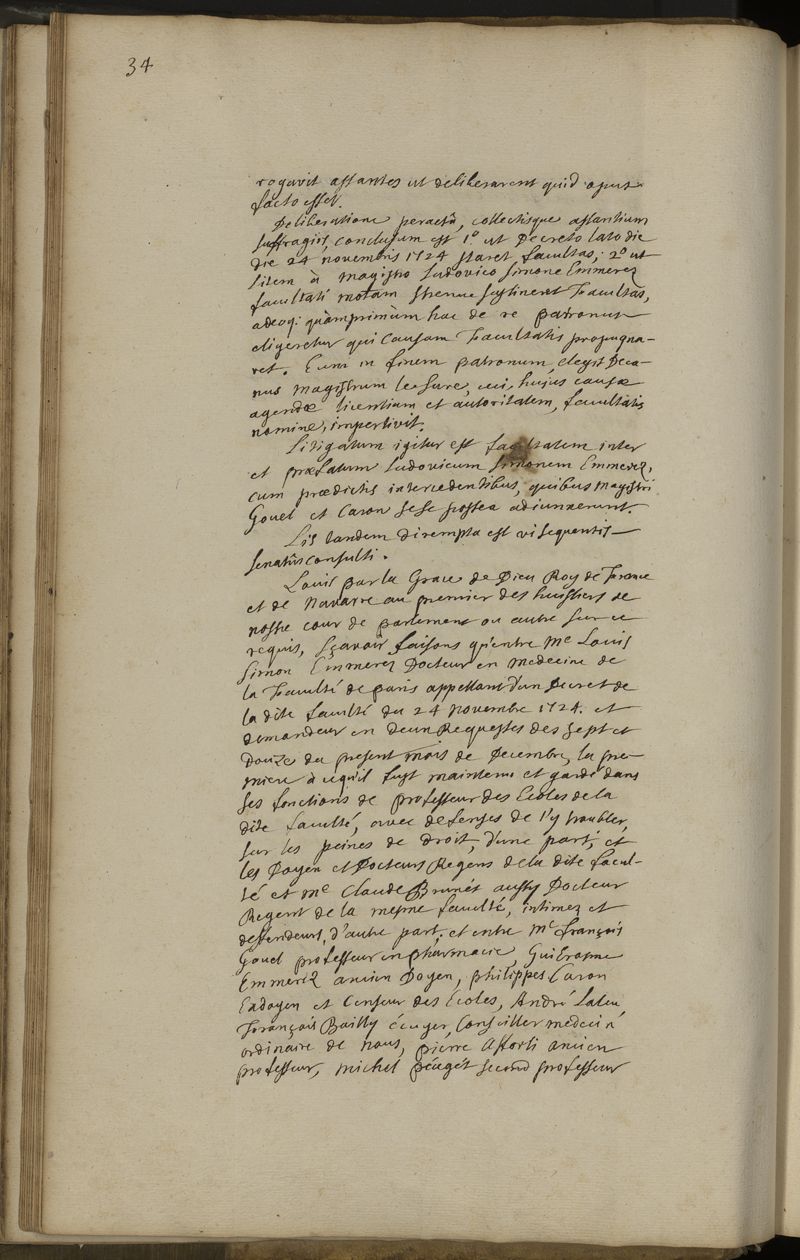 34
rogavit astantes ut deliberarent quid opus
facto esset.
Deliberatione peractâ, collectisque astantium
suffragiis, conclusum est 1.° ut Decreto lato die
die 24 novembris 1724 staret facultas; 2.° ut
litem à Magistro Ludovico Simone Emmerez
facultati motam strenue sustineret Facultas,
adeoq; quàmprimùm hac de re patronus
eligeretur qui causam Facultatis propugna-
ret. Eum in finem patronum elegit Deca-
nus Magistrum le Sure, cui hujus causæ
agendæ licentiam et autoritatem, facultatis
nomine, impertivit.
Litigatum igitur est facultatem inter
et præfatum Ludovicum Simonem Emmerez,
cum prædictis intercedentibus, quibus magistri
Gouel et Caron sese postea adiunxerunt.
Lis tandem dirempta est vi sequentis
senatûsconsulti.
Louis par la Grace de Dieu Roy de France
et de Navarre au premier des huissiers de
nostre cour de parlement ou autre sur ce
requis, sçavoir faisons qu'entre Me Louis
Simon Emmerez Docteur en medecine de
la Faculté de paris appellant d'un Decret de
la dite faculté du 24 novembre 1724. et
demandeur en deux Requestes des sept et
Douze du present mois de Decembre, la pre-
miere à ce qu'il fust maintenu et gardé dans
ses fonctions de professeur des Ecoles de la
dite faculté, avec defenses de l'y troubler,
sur les peines de droit, d'une part; et
les Doyen et Docteurs Regens de la dite facul-
té et Me Claude Brunet aussy Docteur
Regent de la mesme faculté, intimez et
deffendeurs, d'autre part; et entre Me François
Gouel professeur en pharmacie, Gui Erasme
Emmerez ancien Doyen, philippes Caron
Exdoyen et Censeur des Ecoles, André
François Bailly écuyer, Conseiller medecin
ordinaire de nous, pierre Afforti ancien
professeur, Michel peaget second professeur